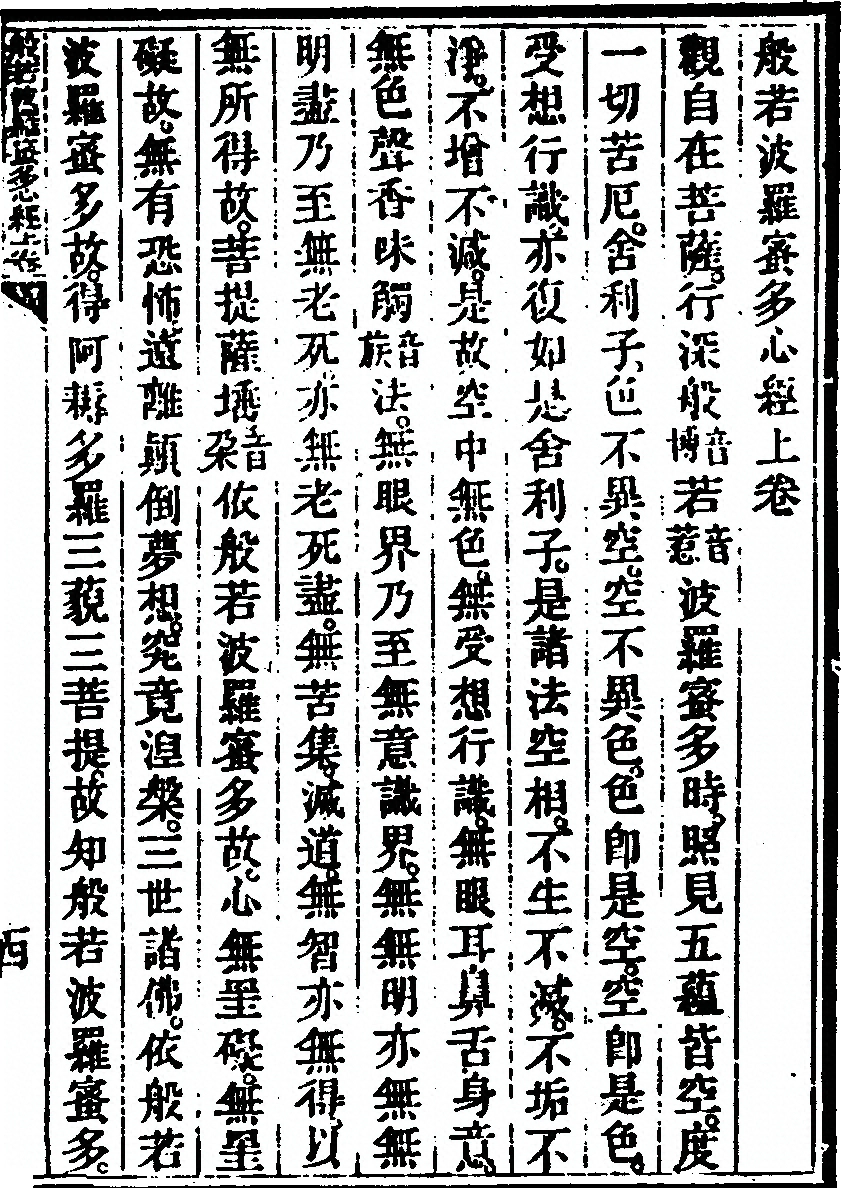 般若波羅蜜多心經上卷
觀自在菩薩。行深般音博若音惹波羅蜜多時。照見五蘊皆空。度
一切苦厄。舍利子、色不異空。空不異色。色卽是空。空卽是色。
受想行識。亦復如是舍利子。是諸法空相。不生不滅。不垢不
淨。不增不減。是故空中無色。無受想行識。無眼耳鼻舌身意。
無色聲香味觸音族法。無眼界乃至無意識界。無無明亦無無
明盡乃至無老死亦無老死盡。無苦集滅道。無智亦無得。以
無所得故。菩提薩埵音朶依般若波羅蜜多故。心無罣礙。無罣
礙故。無有恐怖遠離顛倒夢想。究竟涅槃。三世諸佛。依般若
波羅蜜多故。得阿耨多羅三藐三菩提。故知般若波羅蜜多。
般若波羅蜜多心經上卷